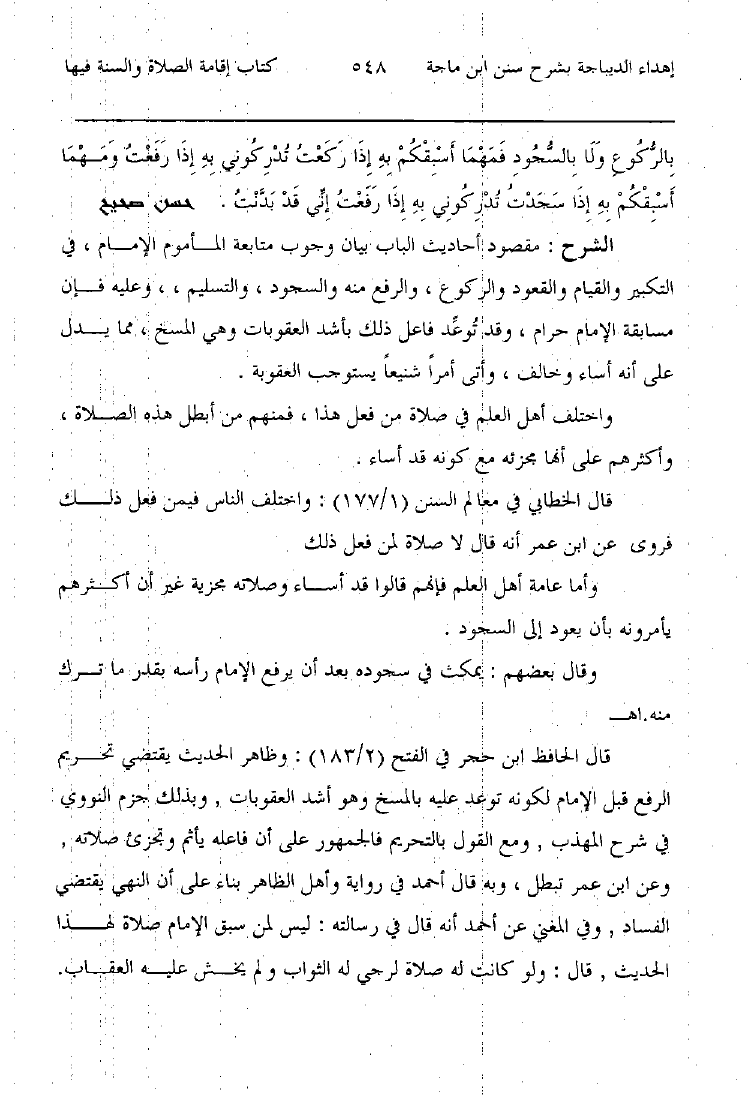 إهداء الديباجة بشرح سنن ابن ماجة ٥٤٨ كتاب إقامة الصلاة والسنة فيها
بِالرُّكُوعِ وَلَا بِالسُّجُودِ فَمَهْمَا أَسْبِقْكُمْ بِهِ إِذَا رَكَعْتُ تُدْرِكُونِي بِهِ إِذَا رَفَعْتُ وَمَــهْمَا
أَسْبِقْكُمْ بِهِ إِذَا سَجَدْتُ تُدْرِكُونِي بِهِ إِذَا رَفَعْتُ إِنِّي قَدْ بَدَّنْتُ . حسن صحيح
الشرح : مقصود أحاديث الباب بيان وجوب متابعة المـأموم الإمـام ، في
التكبير والقيام والقعود والركوع ، والرفع منه والسجود ، والتسليم ، ، وعليه فـإن
مسابقة الإمام حرام ، وقد تُوعِّد فاعل ذلك بأشد العقوبات وهي المسخ ، مما يــدل
على أنه أساء وخالف ، وأتى أمراً شنيعاً يستوجب العقوبة .
واختلف أهل العلم في صلاة من فعل هذا ، فمنهم من أبطل هذه الصــلاة ،
وأكثرهم على أنها مجزئه مع كونه قد أساء .
قال الخطابي في معالم السنن (١٧٧/١) : واختلف الناس فيمن فعل ذلــــك
فروى عن ابن عمر أنه قال لا صلاة لمن فعل ذلك
وأما عامة أهل العلم فإنهم قالوا قد أســاء وصلاته مجزية غير أن أكــثرهم
يأمرونه بأن يعود إلى السجود .
وقال بعضهم : يمكث في سجوده بعد أن يرفع الإمام رأسه بقدر ما تــرك
منه.اهــ
قال الحافظ ابن حجر في الفتح (١٨٣/٢) : وظاهر الحديث يقتضي تحــريم
الرفع قبل الإمام لكونه توعد عليه بالمسخ وهو أشد العقوبات , وبذلك جزم النووي
في شرح المهذب , ومع القول بالتحريم فالجمهور على أن فاعله يأثم وتجزئ صلاته ,
وعن ابن عمر تبطل ، وبه قال أحمد في رواية وأهل الظاهر بناء على أن النهي يقتضي
الفساد , وفي المغني عن أحمد أنه قال في رسالته : ليس لمن سبق الإمام صلاة لهــــذا
الحديث , قال : ولو كانت له صلاة لرجي له الثواب و لم يخــش عليــه العقــاب.